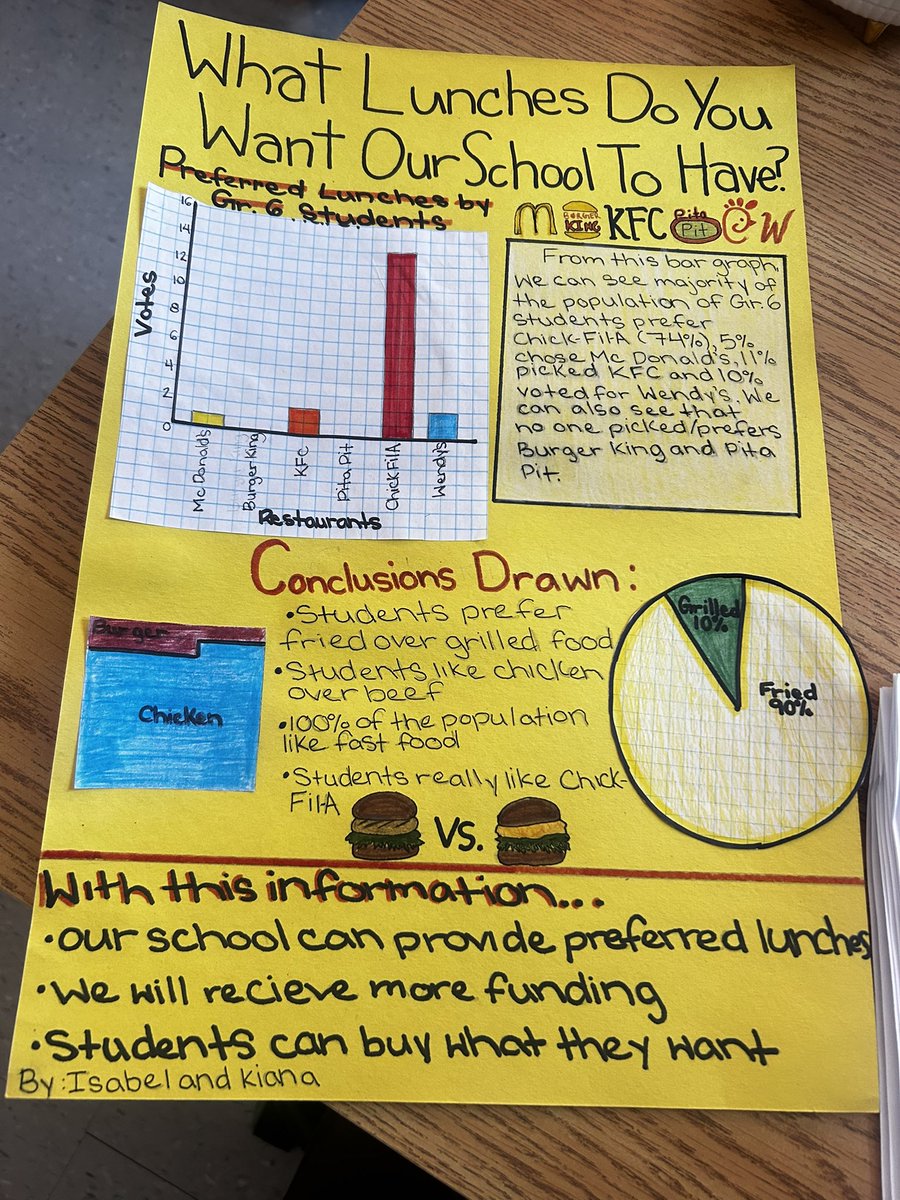 What Lunches Do You
Want Our School To Have?
Preferred Lunches by
Gr. 6 Students
16
14
12
10
8
6
4
2
0
Votes
McDonald's
Burger King
KFC
Pita Pit
Chick Fil A
Wendy's
Restaurants
M
BURGER
KING
KFC
Pita
Pit
C
W
From this bar graph,
we can see majority of
the population of Gr. 6
students prefer
Chick-Fil-A (74%), 5%
chose Mc Donald's, 11%
picked KFC and 10%
voted for Wendy's. We
can also see that
no one picked/prefers
Burger King and Pita
Pit.
Conclusions Drawn:
Burger
Chicken
•Students prefer
fried over grilled food
•Students like chicken
over beef
•100% of the population
like fast food
•Students really like Chick-
Fil-A
VS.
Grilled
10%
Fried
90%
With this information...
•our school can provide preferred lunches
•We will recieve more funding
•Students can buy what they want
By: Isabel and Kiana